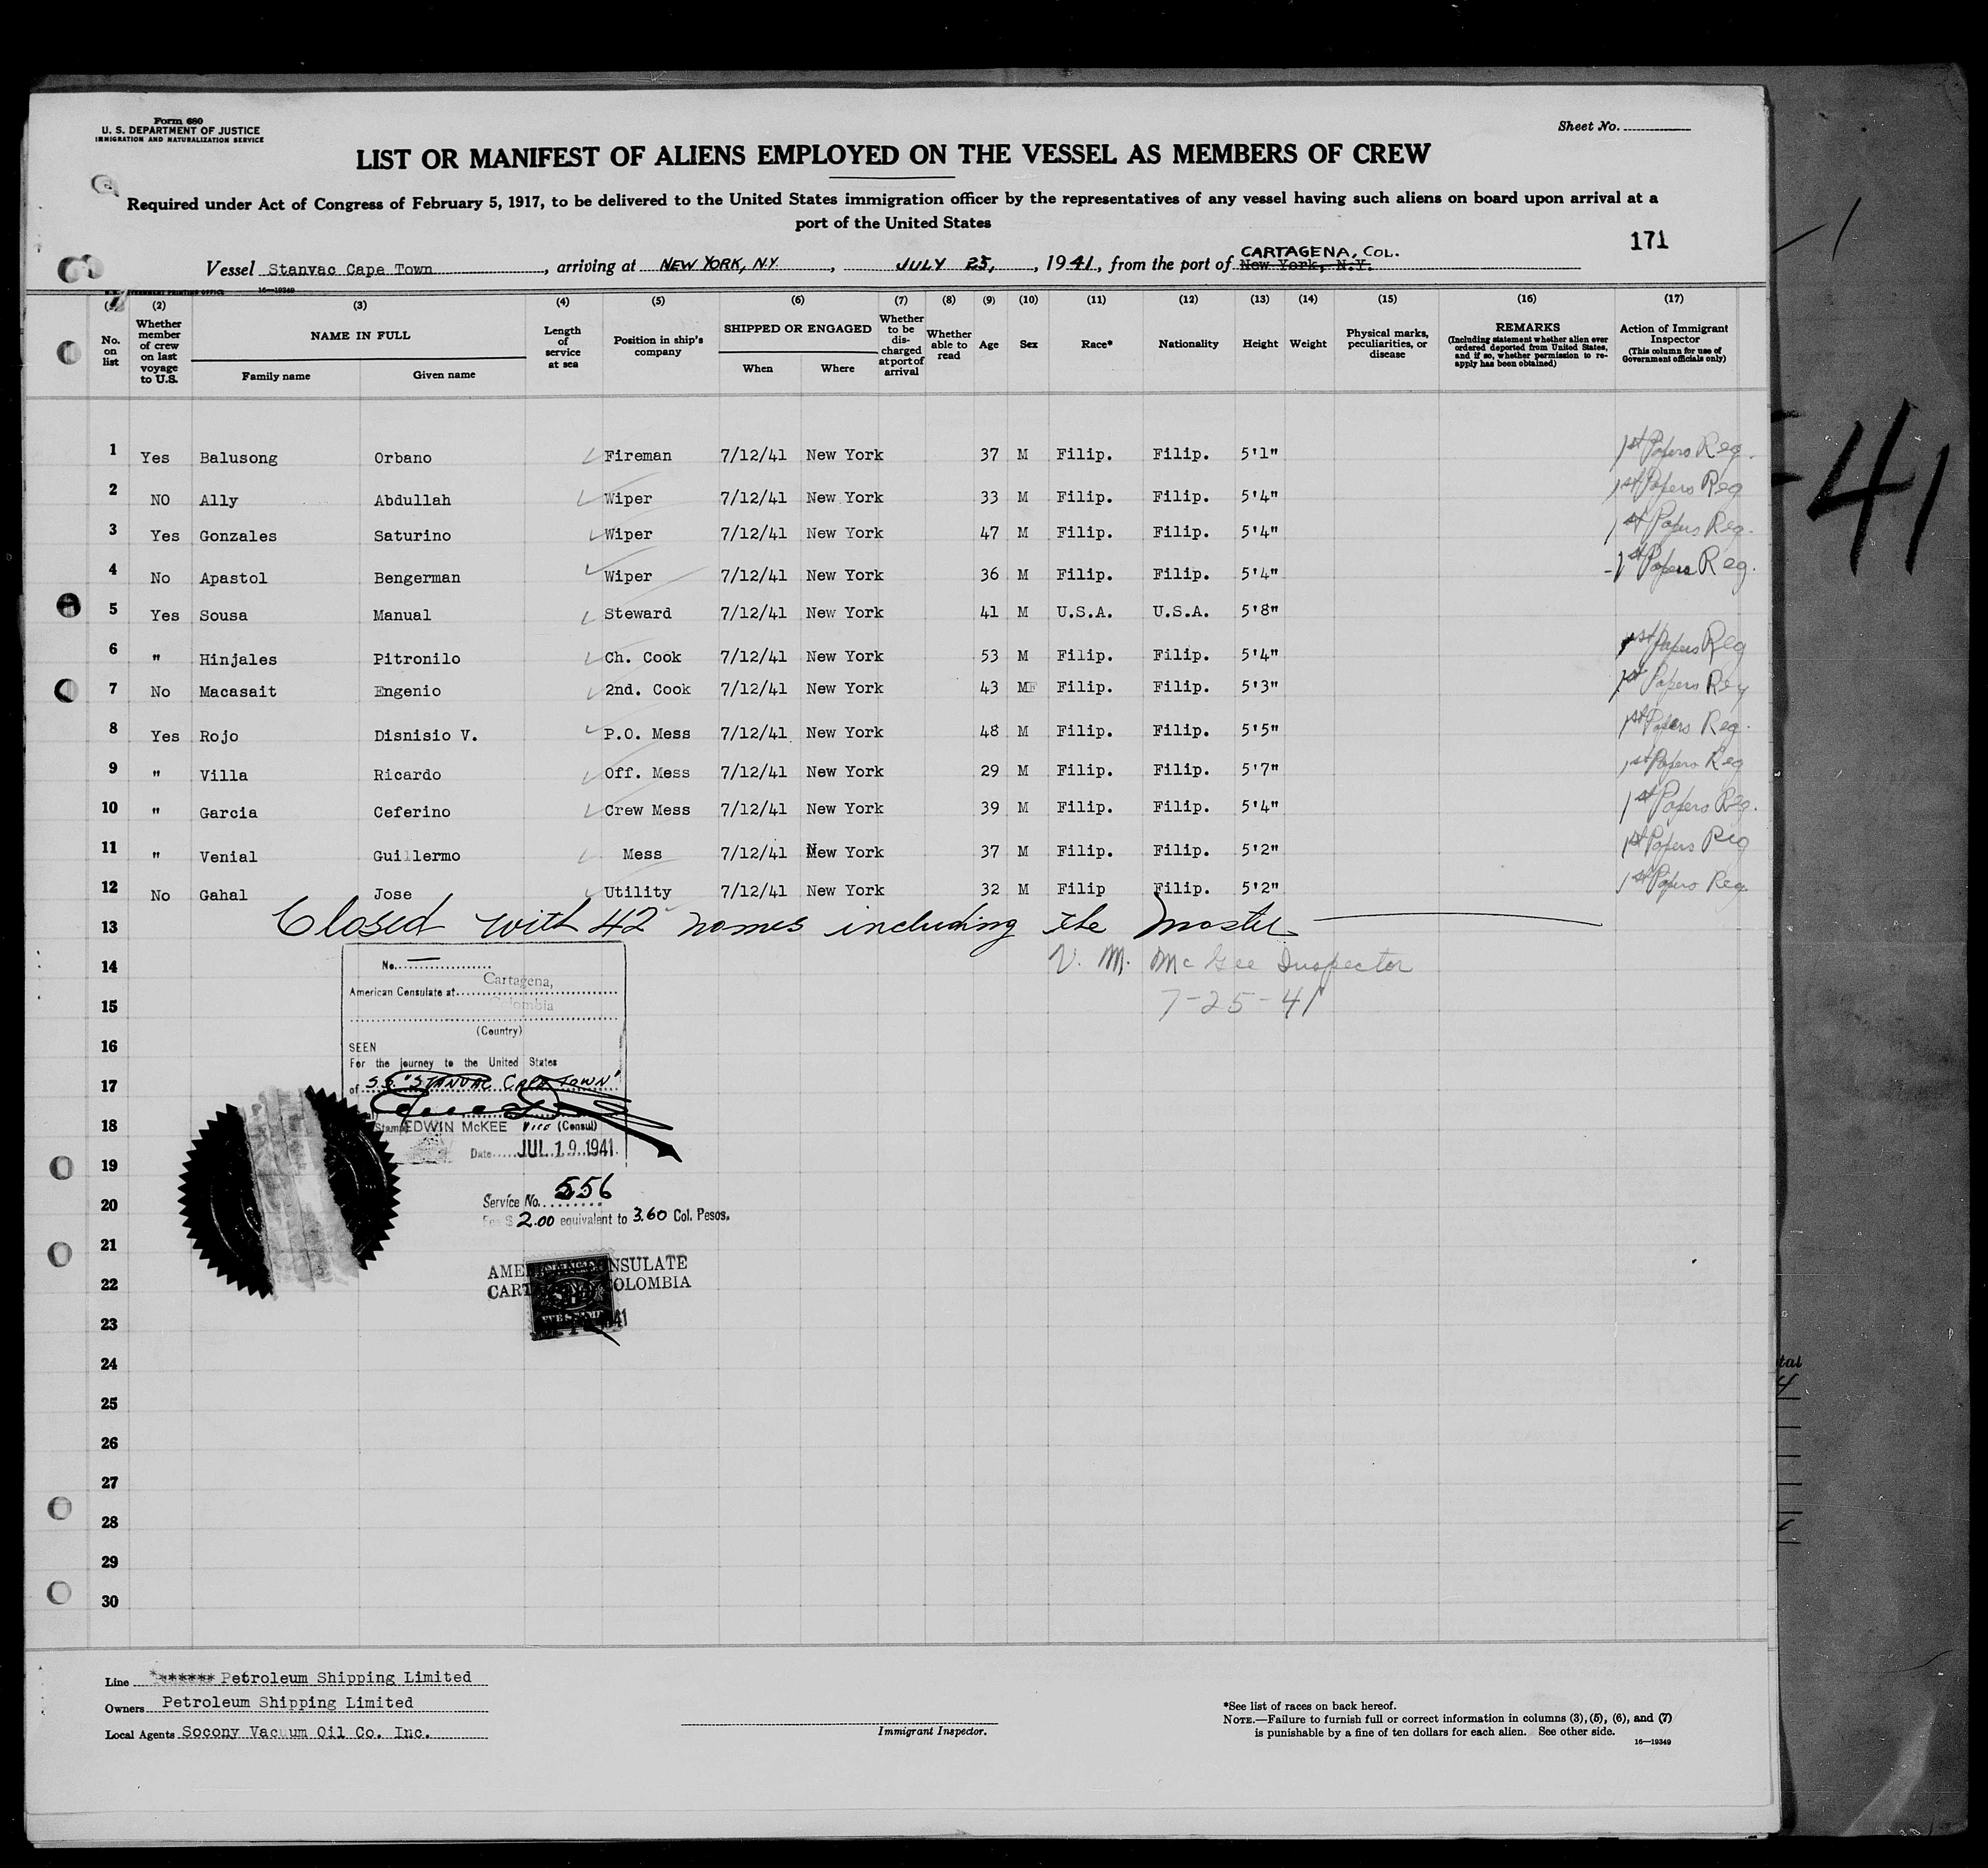 Form 680
U. S. DEPARTMENT OF JUSTICE
IMMIGRATION AND NATURALIZATION SERVICE
Sheet No.
LIST OR MANIFEST OF ALIENS EMPLOYED ON THE VESSEL AS MEMBERS OF CREW
Required under Act of Congress of February 5, 1917, to be delivered to the United States immigration officer by the representatives of any vessel having such aliens on board upon arrival at a
port of the United States
171
CARTAGENA, COL.
Vessel Stanvac Cape Town, arriving at NEW YORK, N.Y., JULY 25, 1941, from the port of New York, N.Y.
16—19349
(2) (3) (4) (5) (6) (7) (8) (9) (10) (11) (12) (13) (14) (15) (16) (17)
No. on list
Whether member of crew on last voyage to U.S.
NAME IN FULL
Family name Given name
Length of service at sea
Position in ship's company
SHIPPED OR ENGAGED
When Where
Whether to be discharged at port of arrival
Whether able to read
Age
Sex
Race*
Nationality
Height
Weight
Physical marks, peculiarities, or disease
REMARKS
(Including statement whether alien ever ordered deported from United States, and if so, whether permission to reapply has been obtained)
Action of Immigrant Inspector
(This column for use of Government officials only)
1 Yes Balusong Orbano Fireman 7/12/41 New York 37 M Filip. Filip. 5'1" 1st Papers Reg.
2 NO Ally Abdullah Wiper 7/12/41 New York 33 M Filip. Filip. 5'4" 1st Papers Reg
3 Yes Gonzales Saturino Wiper 7/12/41 New York 47 M Filip. Filip. 5'4" 1st Papers Reg.
4 No Apastol Bengerman Wiper 7/12/41 New York 36 M Filip. Filip. 5'4" 1st Papers Reg.
5 Yes Sousa Manual Steward 7/12/41 New York 41 M U.S.A. U.S.A. 5'8"
6 " Hinjales Pitronilo Ch. Cook 7/12/41 New York 53 M Filip. Filip. 5'4" 1st Papers Reg
7 No Macasait Engenio 2nd. Cook 7/12/41 New York 43 M Filip. Filip. 5'3" 1st Papers Reg
8 Yes Rojo Disnisio V. P.O. Mess 7/12/41 New York 48 M Filip. Filip. 5'5" 1st Papers Reg.
9 " Villa Ricardo Off. Mess 7/12/41 New York 29 M Filip. Filip. 5'7" 1st Papers Reg
10 " Garcia Ceferino Crew Mess 7/12/41 New York 39 M Filip. Filip. 5'4" 1st Papers Reg.
11 " Venial Guillermo Mess 7/12/41 New York 37 M Filip. Filip. 5'2" 1st Papers Reg
12 No Gahal Jose Utility 7/12/41 New York 32 M Filip Filip. 5'2" 1st Papers Reg.
13 Closed with 42 names including the Master
14 V. M. McGee Inspector
15 7-25-41
16
17
18
19
20
21
22
23
24
25
26
27
28
29
30
No.
American Consulate at Cartagena,
Colombia
(Country)
SEEN
For the journey to the United States
of S.S. "STANVAC CAPE TOWN"
Stamp EDWIN McKEE Vice (Consul)
Date JUL 19 1941
Service No. 556
Fee $ 2.00 equivalent to 3.60 Col. Pesos.
AMERICAN CONSULATE
CARTAGENA COLOMBIA
Line Petroleum Shipping Limited
Owners Petroleum Shipping Limited
Local Agents Socony Vacuum Oil Co. Inc.
Immigrant Inspector.
*See list of races on back hereof.
NOTE.—Failure to furnish full or correct information in columns (3), (5), (6), and (7)
is punishable by a fine of ten dollars for each alien. See other side.
16—19349
41